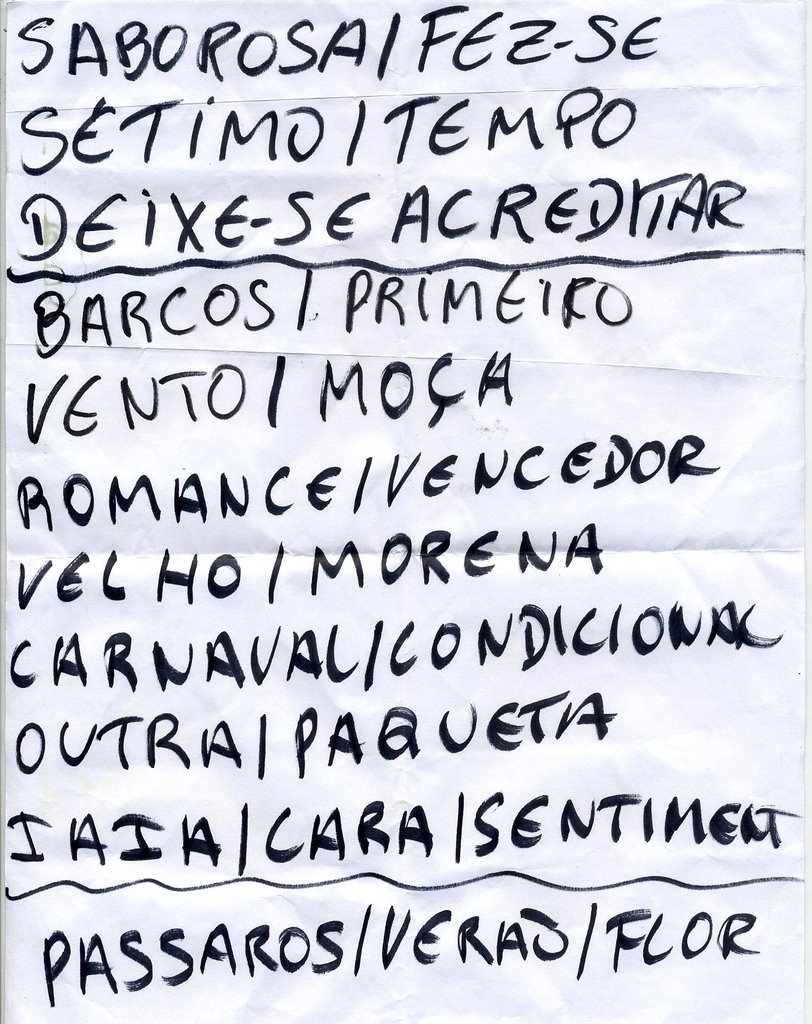 SABOROSA/FEZ-SE
SÉTIMO/TEMPO
DEIXE-SE ACREDITAR
BARCOS/PRIMEIRO
VENTO/MOÇA
ROMANCE/VENCEDOR
VELHO/MORENA
CARNAVAL/CONDICIONAL
OUTRA/PAQUETA
IAIA/CARA/SENTIMENT
PASSAROS/VERÃO/FLOR